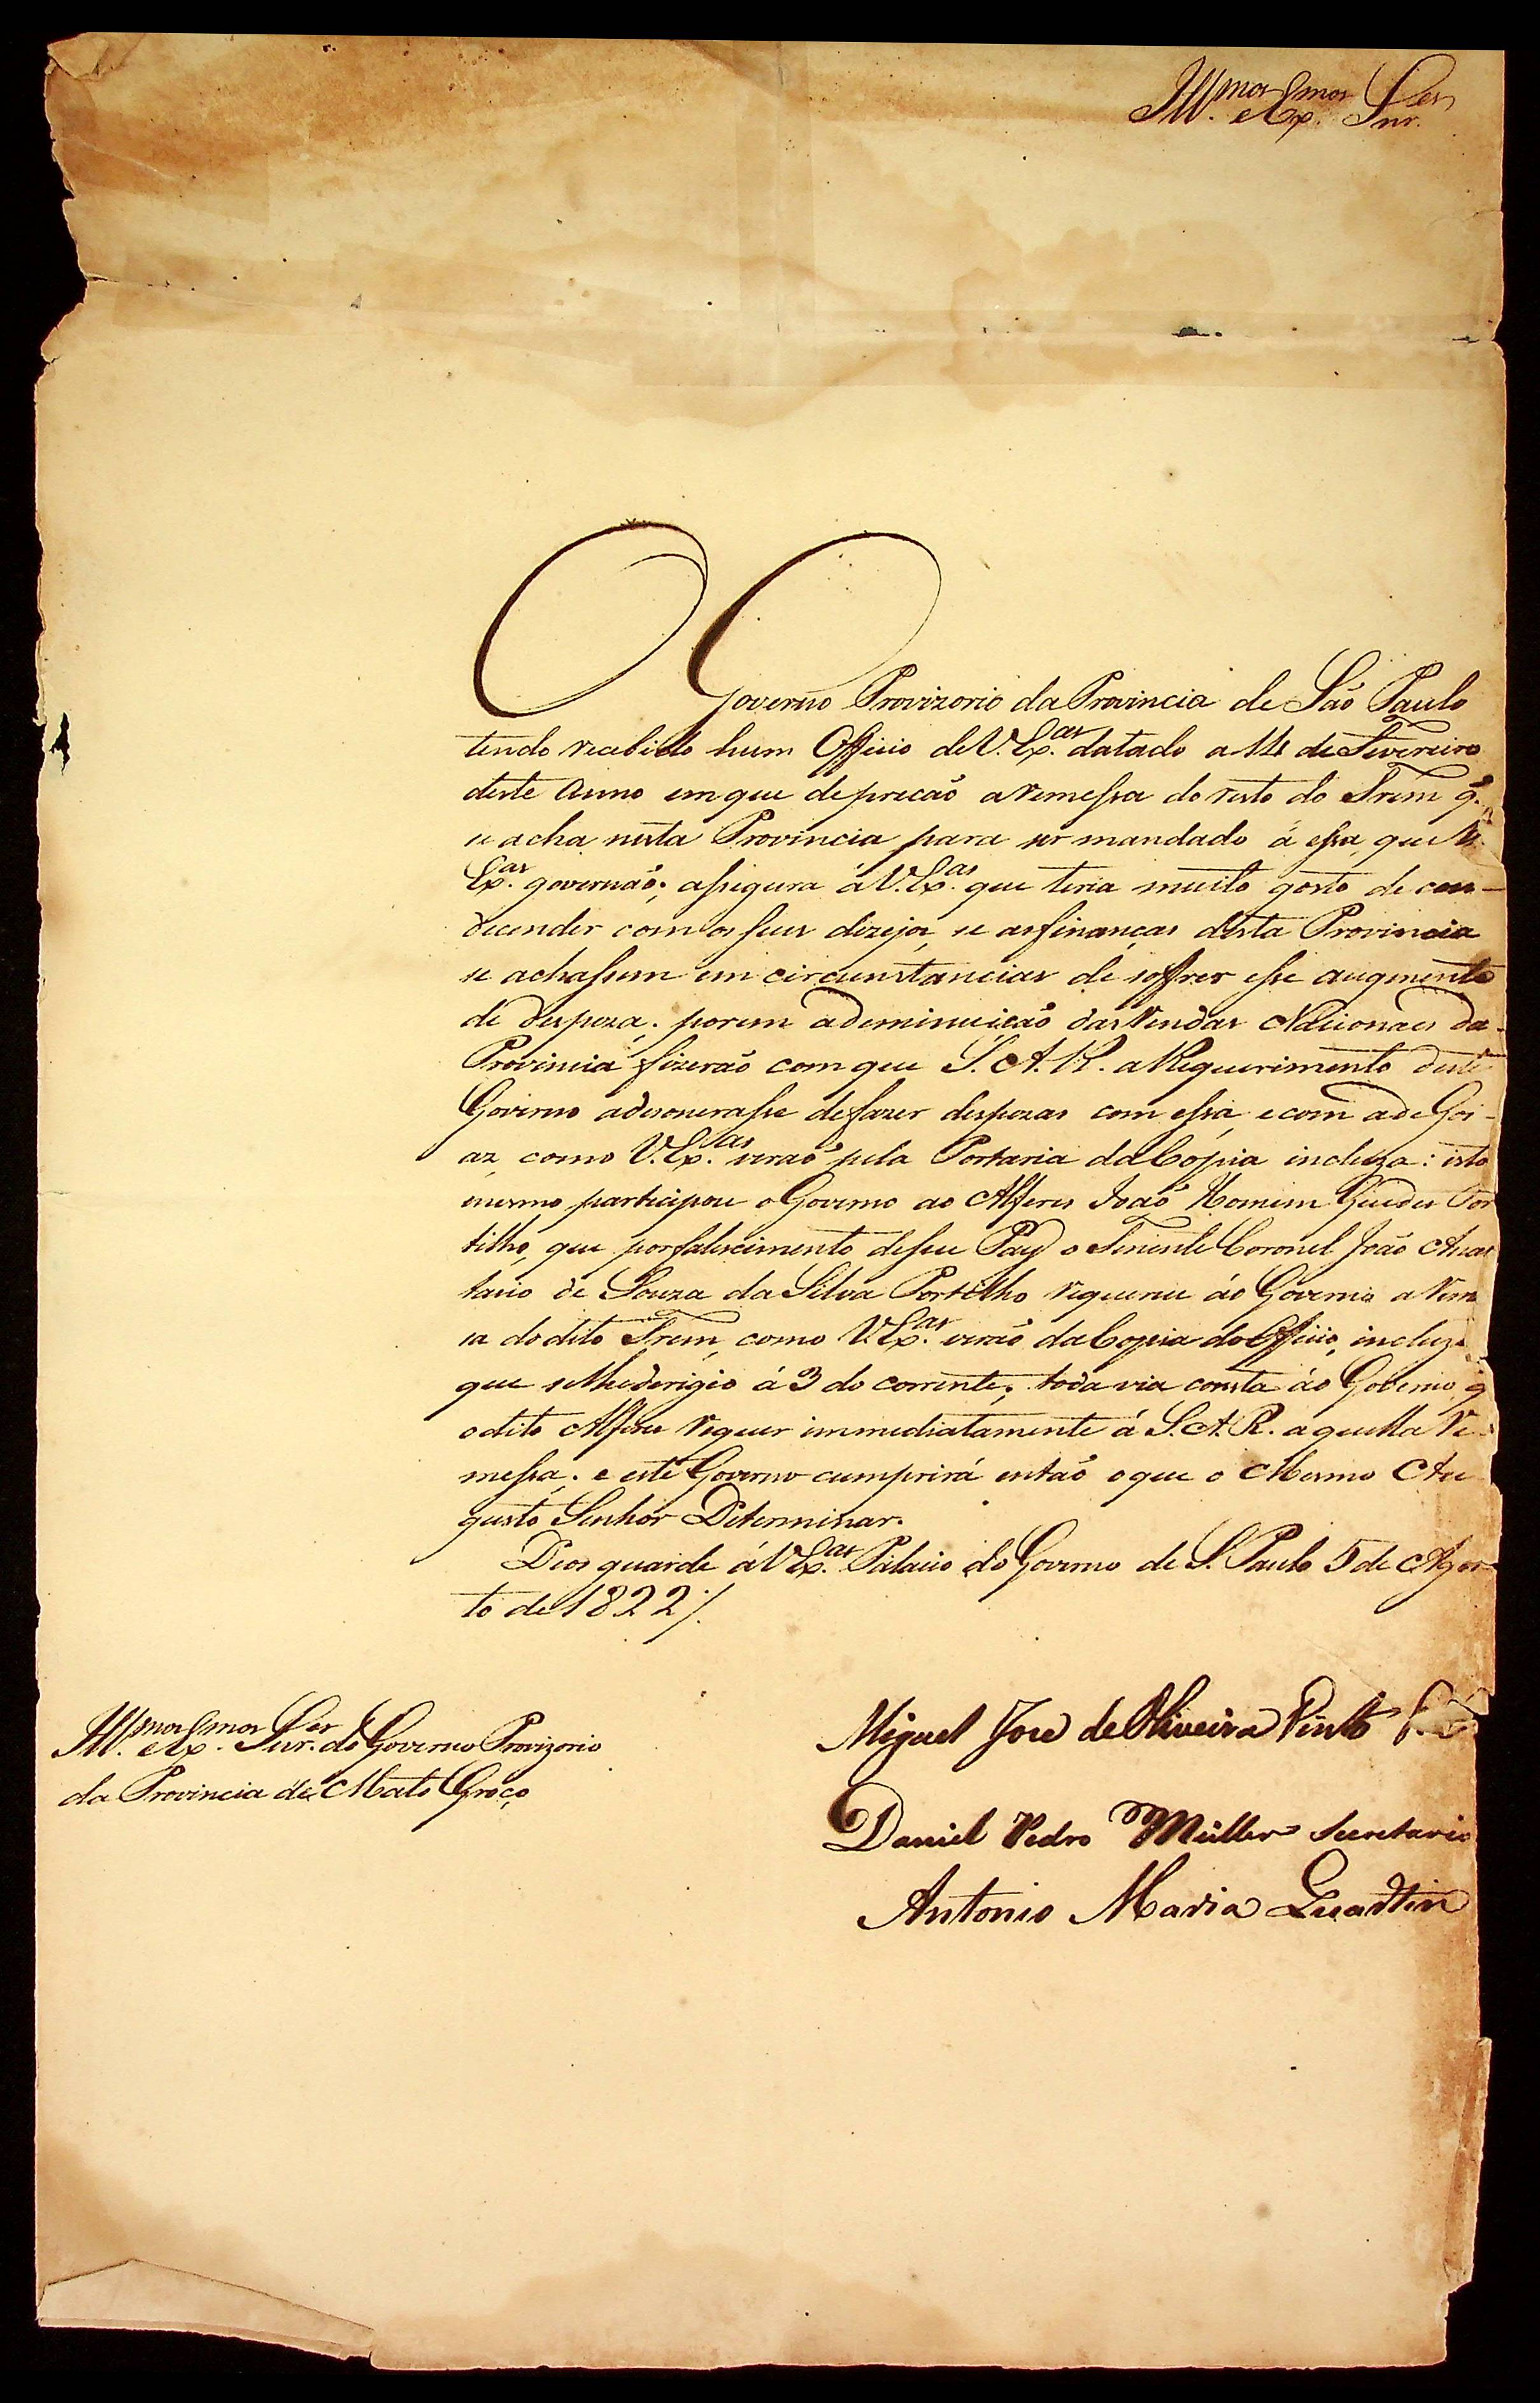 Ill.mos e Ex.mos Snr.es
O Governo Provizorio da Provincia de São Paulo
tendo recebido hum Officio de V. Ex.as datado a 14 de Fevereiro
deste Anno em que deprecão a remessa do resto do Trem q.
se acha nesta Provincia para ser mandado á essa, que V.
Ex.as governão; assegura á V. Ex.as que teria muito gosto de con-
decender com os seus dezejos, se as finanças desta Provincia
se achassem em circunstancias de soffrer esse augmento
de despeza, porem a deminuição das Rendas Nacionaes da
Provincia fizerão com que S. A. R. a Requerimento deste
Governo adesonerasse de fazer despezas com essa, e com a de Goi-
az, como V. Ex.as verão pela Portaria da Copia incluza: isto
mesmo participou o Governo ao Alferes João Homem Guedes Por
tilho, que por falescimento de seu Pay o Tenente Coronel João Anas
tacio de Souza da Silva Portilho requereu áo Governo a rem
sa do dito Trem, como V. Ex.as verão da Copia do Officio, incluza
que se lhe derigio á 3 do corrente; toda via consta áo Governo q
o dito Alferes requer immediatamente á S. A. R. aquella re-
messa, e este Governo cumprirá então o que o Mesmo Au
gusto Senhor Determinar.
Deos guarde á V. Ex.as Palacio do Governo de S. Paulo 5 de Agos-
to de 1822 /.
Miguel Joze de Oliveira Pinto
Daniel Pedro Müller Secretario
Antonio Maria Quartin
Ill.mos e Ex.mos Snr.es do Governo Provizorio
da Provincia de Mato Groço